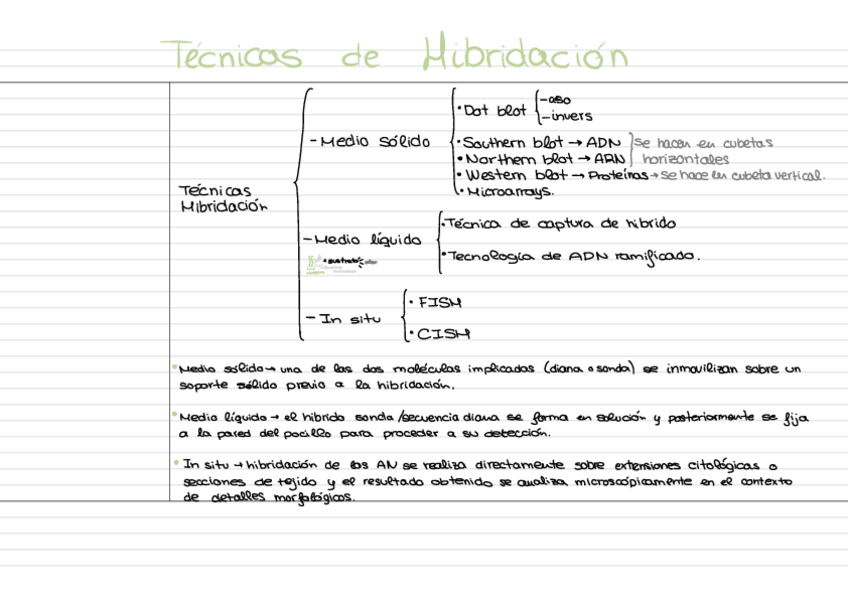 Técnicas de Hibridación
Técnicas
Hibridación
- Medio sólido
• Dot blot
- aso
- invers
• Southern blot → ADN
• Northern blot → ARN
se hacen en cubetas
horizontales
• Western blot → Proteínas → se hace en cubeta vertical.
• Microarrays.
- Medio líquido
• Técnica de captura de hibrido
• Tecnología de ADN ramificado.
- In situ
• FISH
• CISH
• Medio sólido → una de las dos moléculas implicadas (diana o sonda) se inmovilizan sobre un
soporte sólido previo a la hibridación.
• Medio líquido → el hibrido sonda/secuencia diana se forma en solución y posteriormente se fija
a la pared del pocillo para proceder a su detección.
• In situ → hibridación de los AN se realiza directamente sobre extensiones citológicas o
secciones de tejido y el resultado obtenido se analiza microscópicamente en el contexto
de detalles morfológicos.